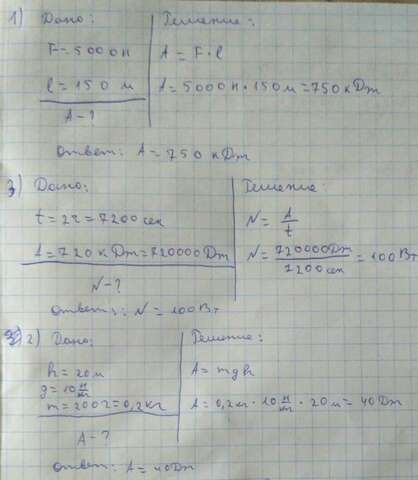 1) Дано:
F = 5000н
l = 150 м
A - ?
Решение:
A = F · l
A = 5000н · 150 м = 750 кДж
Ответ: A = 750 кДж
3) Дано:
t = 2ч = 7200 сек
A = 720 кДж = 720000 Дж
N - ?
Решение:
N = A/t
N = 720000Дж/7200 сек = 100 Вт
Ответ: N = 100 Вт
2) Дано:
h = 20м
g = 10 н/кг
m = 200г = 0,2кг
A - ?
Решение:
A = mgh
A = 0,2 кг · 10 н/кг · 20 м = 40 Дж
Ответ: A = 40Дж